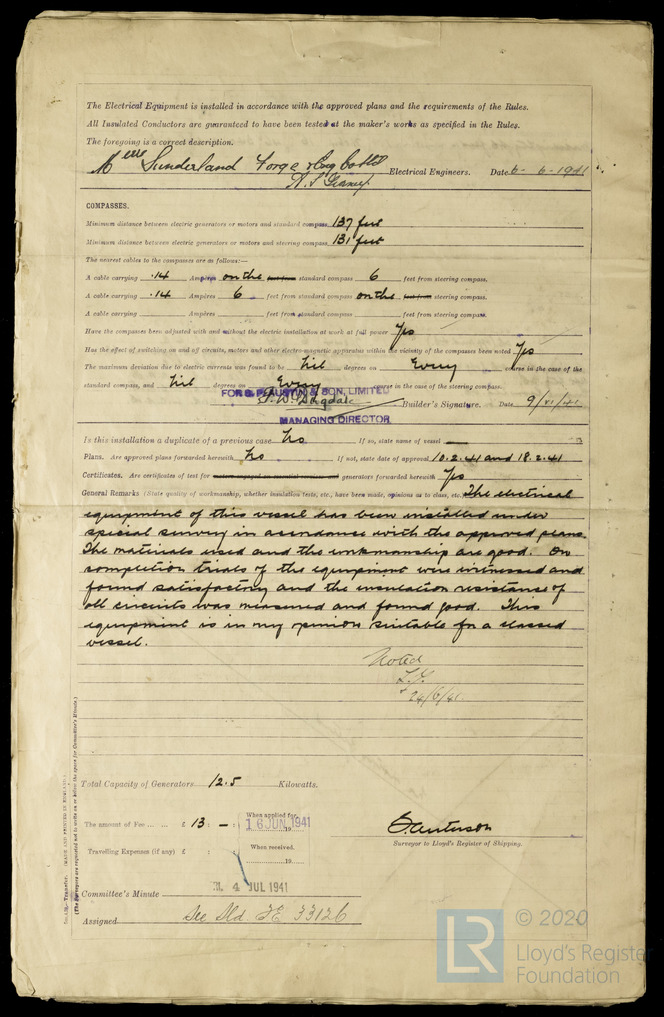 The Electrical Equipment is installed in accordance with the approved plans and the requirements of the Rules.
All Insulated Conductors are guaranteed to have been tested at the maker's works as specified in the Rules.
The foregoing is a correct description.
Sunderland Forge & Eng Co Ltd Electrical Engineers. Date 6 - 6 - 1941
COMPASSES.
Minimum distance between electric generators or motors and standard compass 137 feet
Minimum distance between electric generators or motors and steering compass 131 feet
The nearest cables to the compasses are as follows:—
A cable carrying .14 Ampères on the standard compass 6 feet from steering compass.
A cable carrying .14 Ampères 6 feet from standard compass on the steering compass.
A cable carrying Ampères feet from standard compass feet from steering compass.
Have the compasses been adjusted with and without the electric installation at work at full power Yes
Has the effect of switching on and off circuits, motors and other electro-magnetic apparatus within the vicinity of the compasses been noted Yes
The maximum deviation due to electric currents was found to be Nil degrees on Every course in the case of the
standard compass, and Nil degrees on Every course in the case of the steering compass.
FOR S. P. AUSTIN & SON, LIMITED
Builder's Signature. Date 9/VI/41
MANAGING DIRECTOR
Is this installation a duplicate of a previous case No If so, state name of vessel —
Plans. Are approved plans forwarded herewith No If not, state date of approval 10.2.41 and 18.2.41
Certificates. Are certificates of test for generators forwarded herewith Yes
General Remarks (State quality of workmanship, whether insulation tests, etc., have been made, opinions as to class, etc. The electrical
equipment of this vessel has been installed under
special survey in accordance with the approved plans.
The materials used and the workmanship are good. On
completion trials of the equipment were witnessed and
found satisfactory and the insulation resistance of
all circuits was measured and found good. This
equipment is in my opinion suitable for a classed
vessel.
Noted
24/6/41
Total Capacity of Generators 12.5 Kilowatts.
The amount of Fee ... ... £ 13 : — : When applied for, 16 JUN 1941 19
Travelling Expenses (if any) £ : : When received, 19
Surveyor to Lloyd's Register of Shipping.
Committee's Minute 4 JUL 1941
Assigned See Sld FE 33126
Transfer. (MADE AND PRINTED IN ENGLAND.)
(The Surveyors are requested not to write on or below the space for Committee's Minute.)
LR © 2020
Lloyd's Register
Foundation